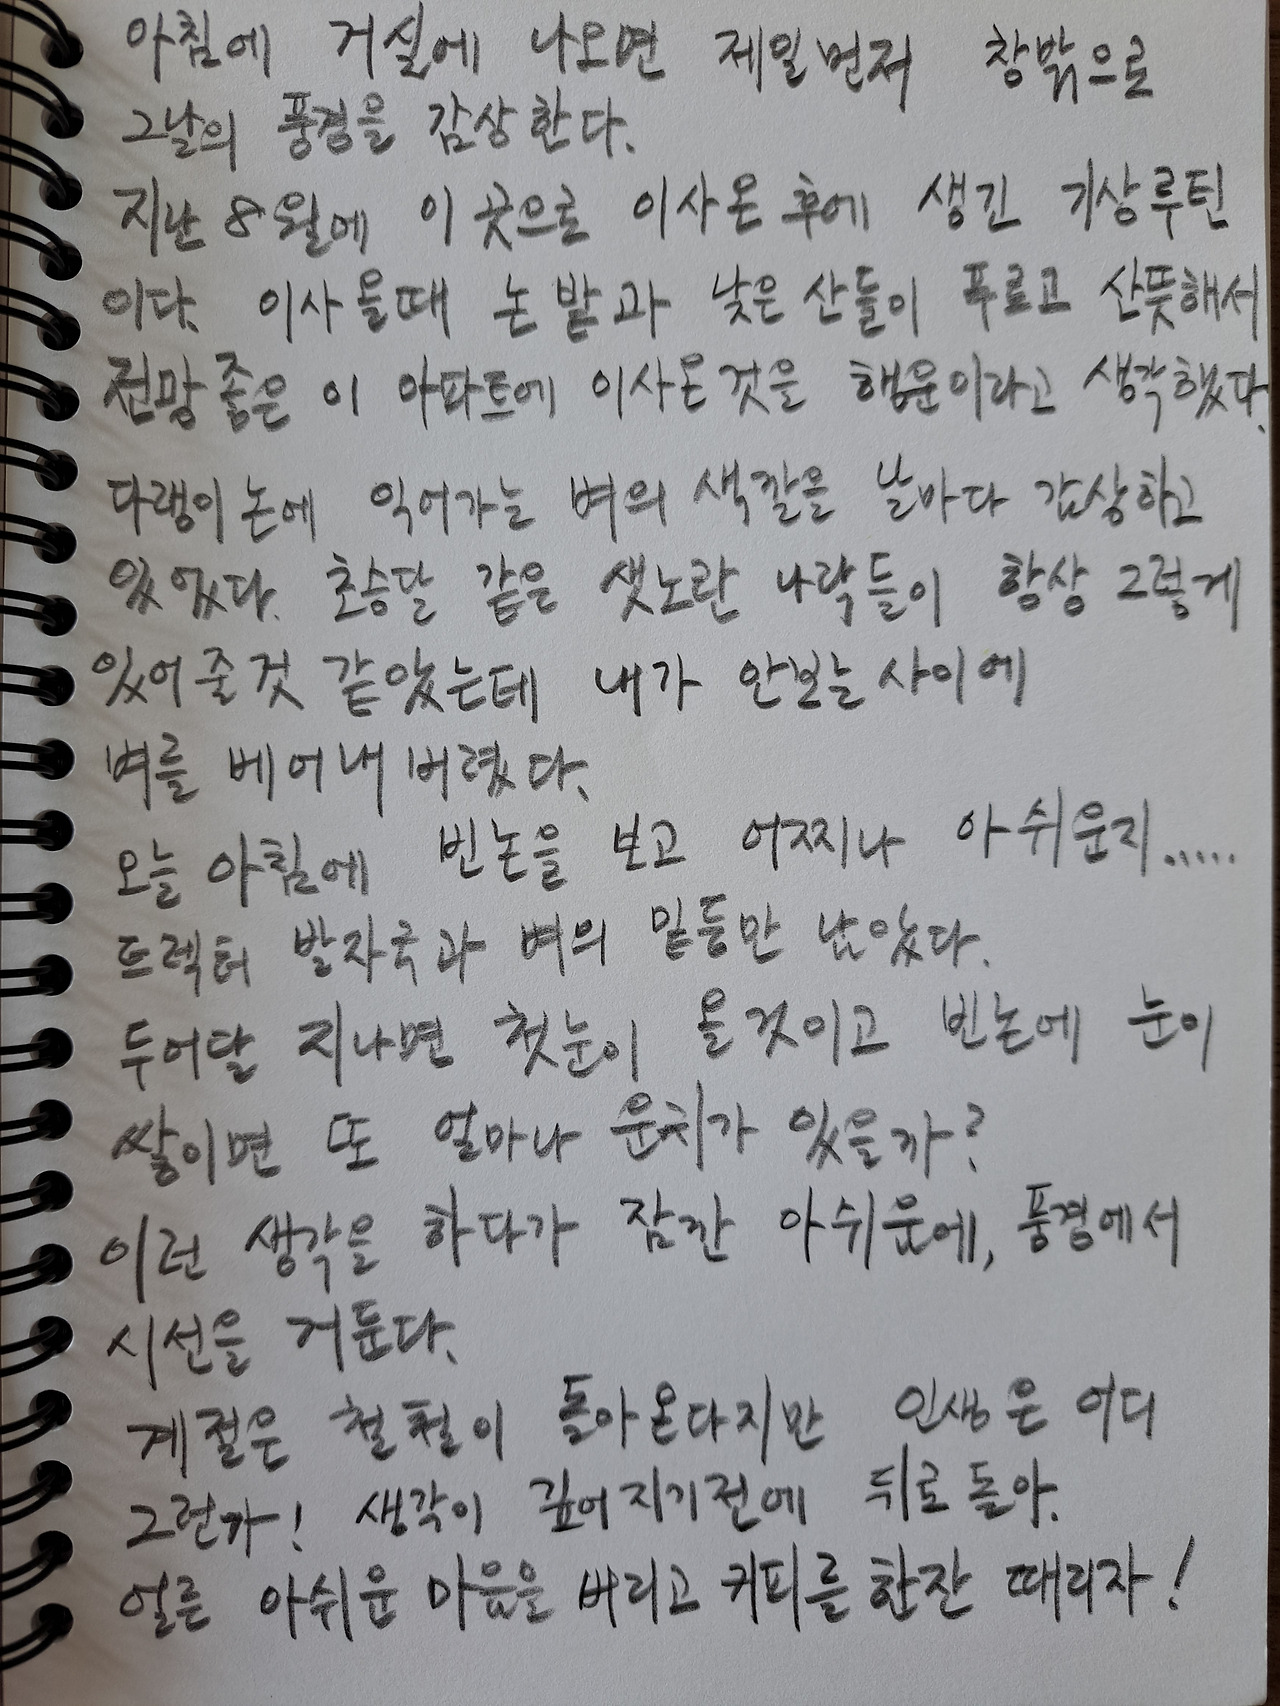 아침에 거실에 나오면 제일먼저 창밖으로
그날의 풍경을 감상한다.
지난 8월에 이 곳으로 이사온 후에 생긴 기상루틴
이다. 이사 올때 논밭과 낮은 산들이 푸르고 산뜻해서
전망좋은 이 아파트에 이사온것을 행운이라고 생각했다.
다랭이논에 익어가는 벼의 색깔을 날마다 감상하고
있었다. 초승달 같은 샛노란 나락들이 항상 그렇게
있어줄것 같았는데 내가 안보는 사이에
벼를 베어내 버렸다.
오늘 아침에 빈논을 보고 어찌나 아쉬운지.....
트렉터 발자국과 벼의 밑둥만 남았다.
두어달 지나면 첫눈이 올것이고 빈논에 눈이
쌓이면 또 얼마나 운치가 있을까?
이런 생각을 하다가 잠깐 아쉬운에, 풍경에서
시선을 거둔다.
계절은 철철이 돌아온다지만 인생은 어디
그런가! 생각이 깊어지기전에 뒤로돌아.
얼른 아쉬운 마음은 버리고 커피를 한잔 때리자!